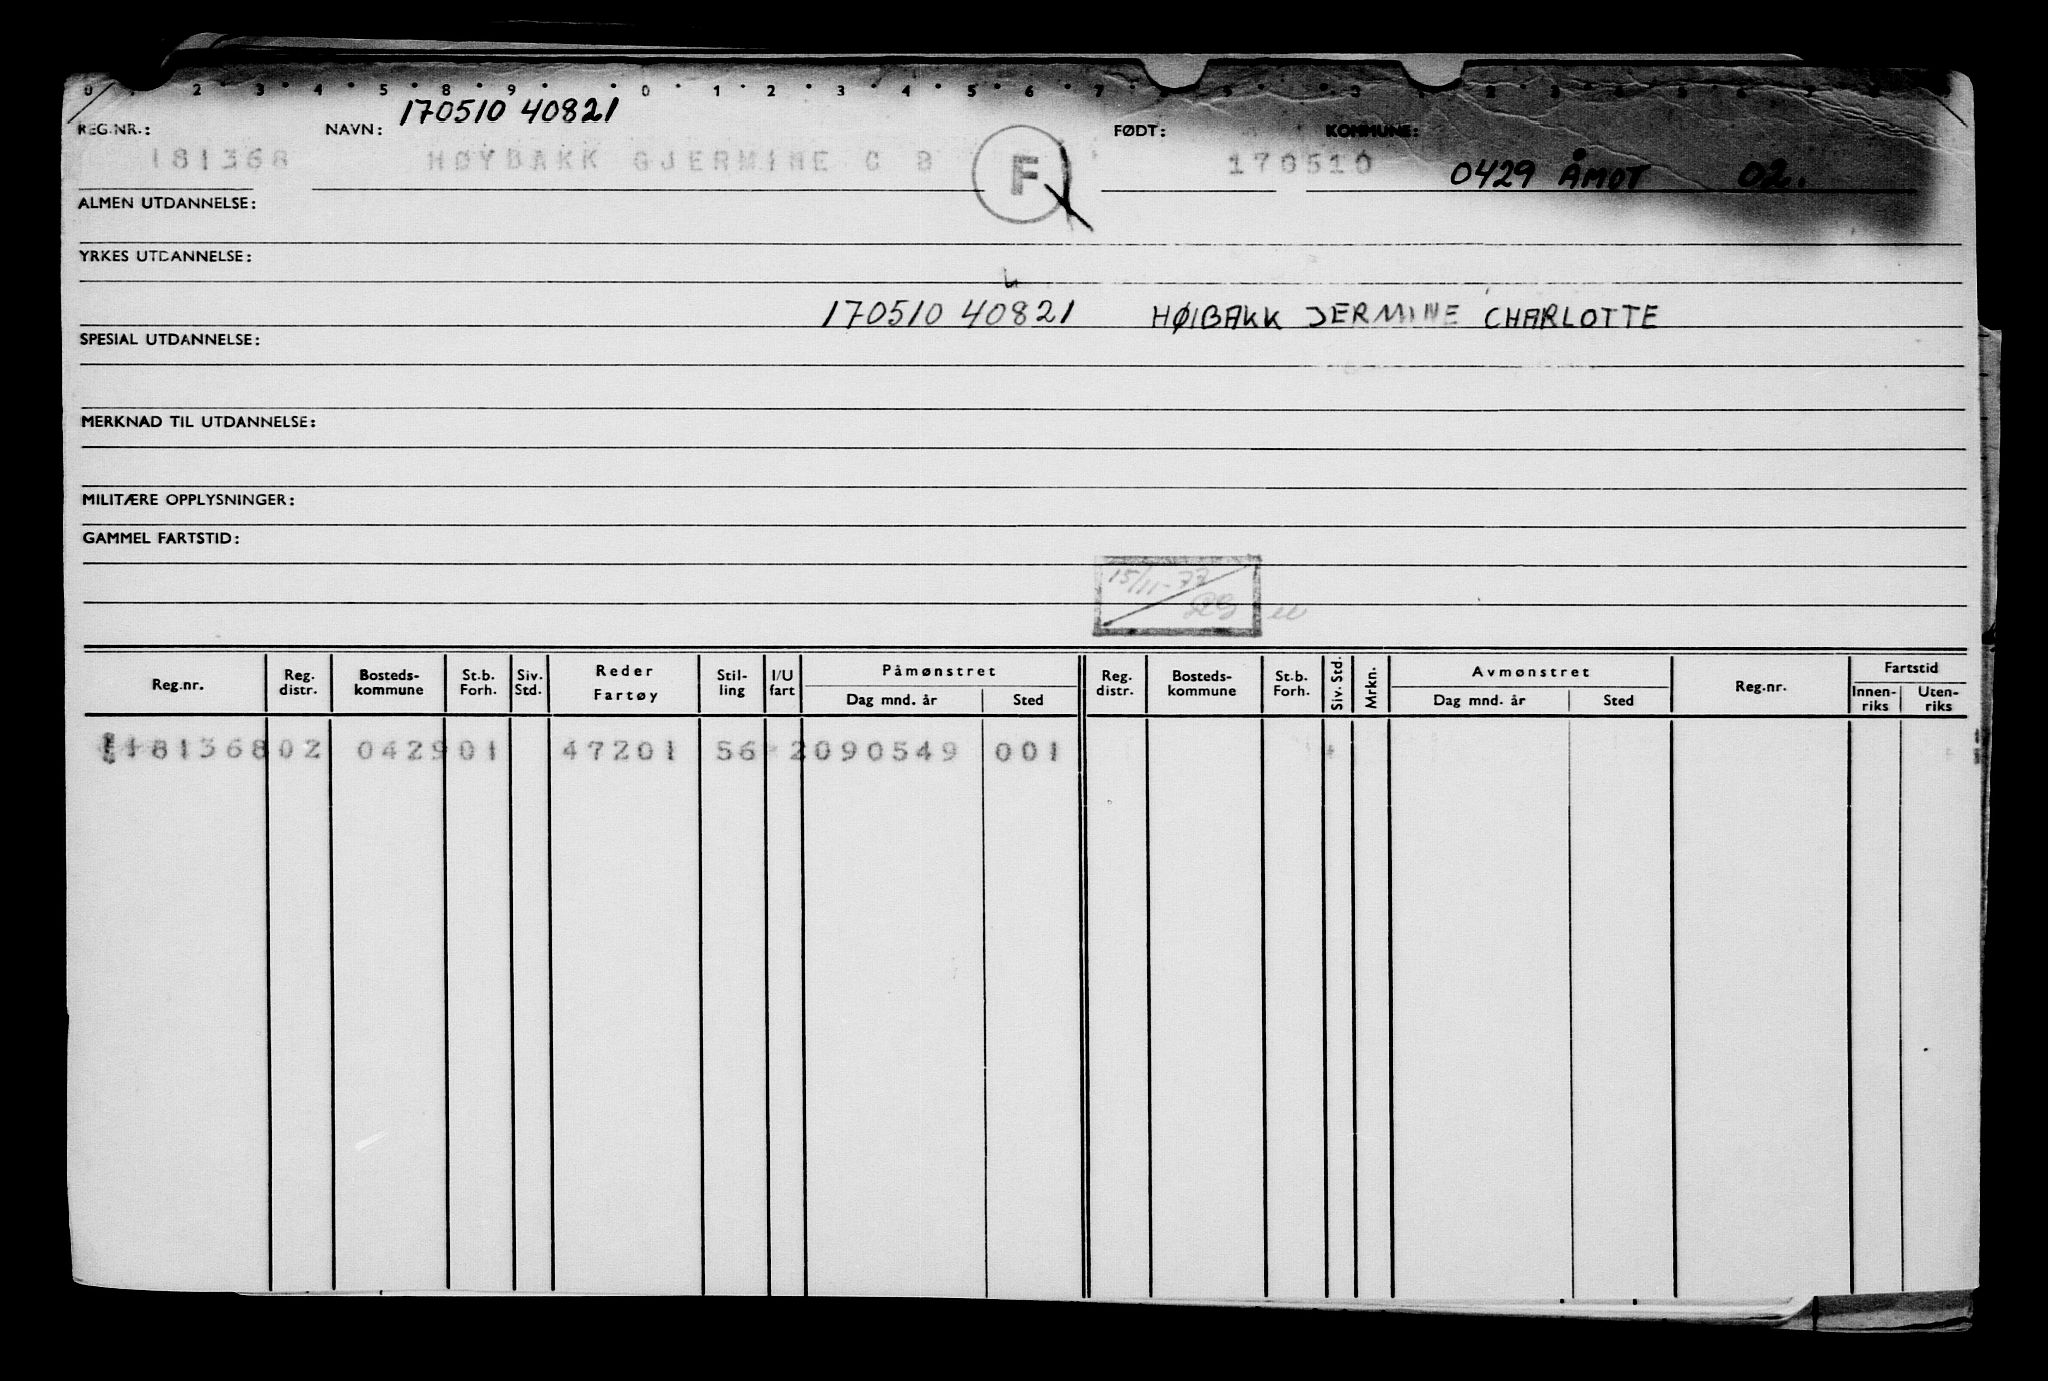 170510 40821
REG.NR.: NAVN: FØDT: KOMMUNE:
181368 HØYBAKK GJERMINE C B F 170510 0429 ÅMOT 02.
ALMEN UTDANNELSE:
YRKES UTDANNELSE:
170510 40821 HØIBAKK JERMINE CHARLOTTE
SPESIAL UTDANNELSE:
MERKNAD TIL UTDANNELSE:
MILITÆRE OPPLYSNINGER:
GAMMEL FARTSTID:
15/11-77
Reg.nr. Reg. distr. Bosteds-kommune St.b. Forh. Siv. Std. Reder Fartøy Stil-ling I/U fart Påmønstret Dag mnd. år Sted Reg. distr. Bosteds-kommune St.b. Forh. Siv. Std. Mrkn. Avmønstret Dag mnd. år Sted Reg.nr. Fartstid Innen-riks Uten-riks
18136802 042901 47201 56 2090549 001